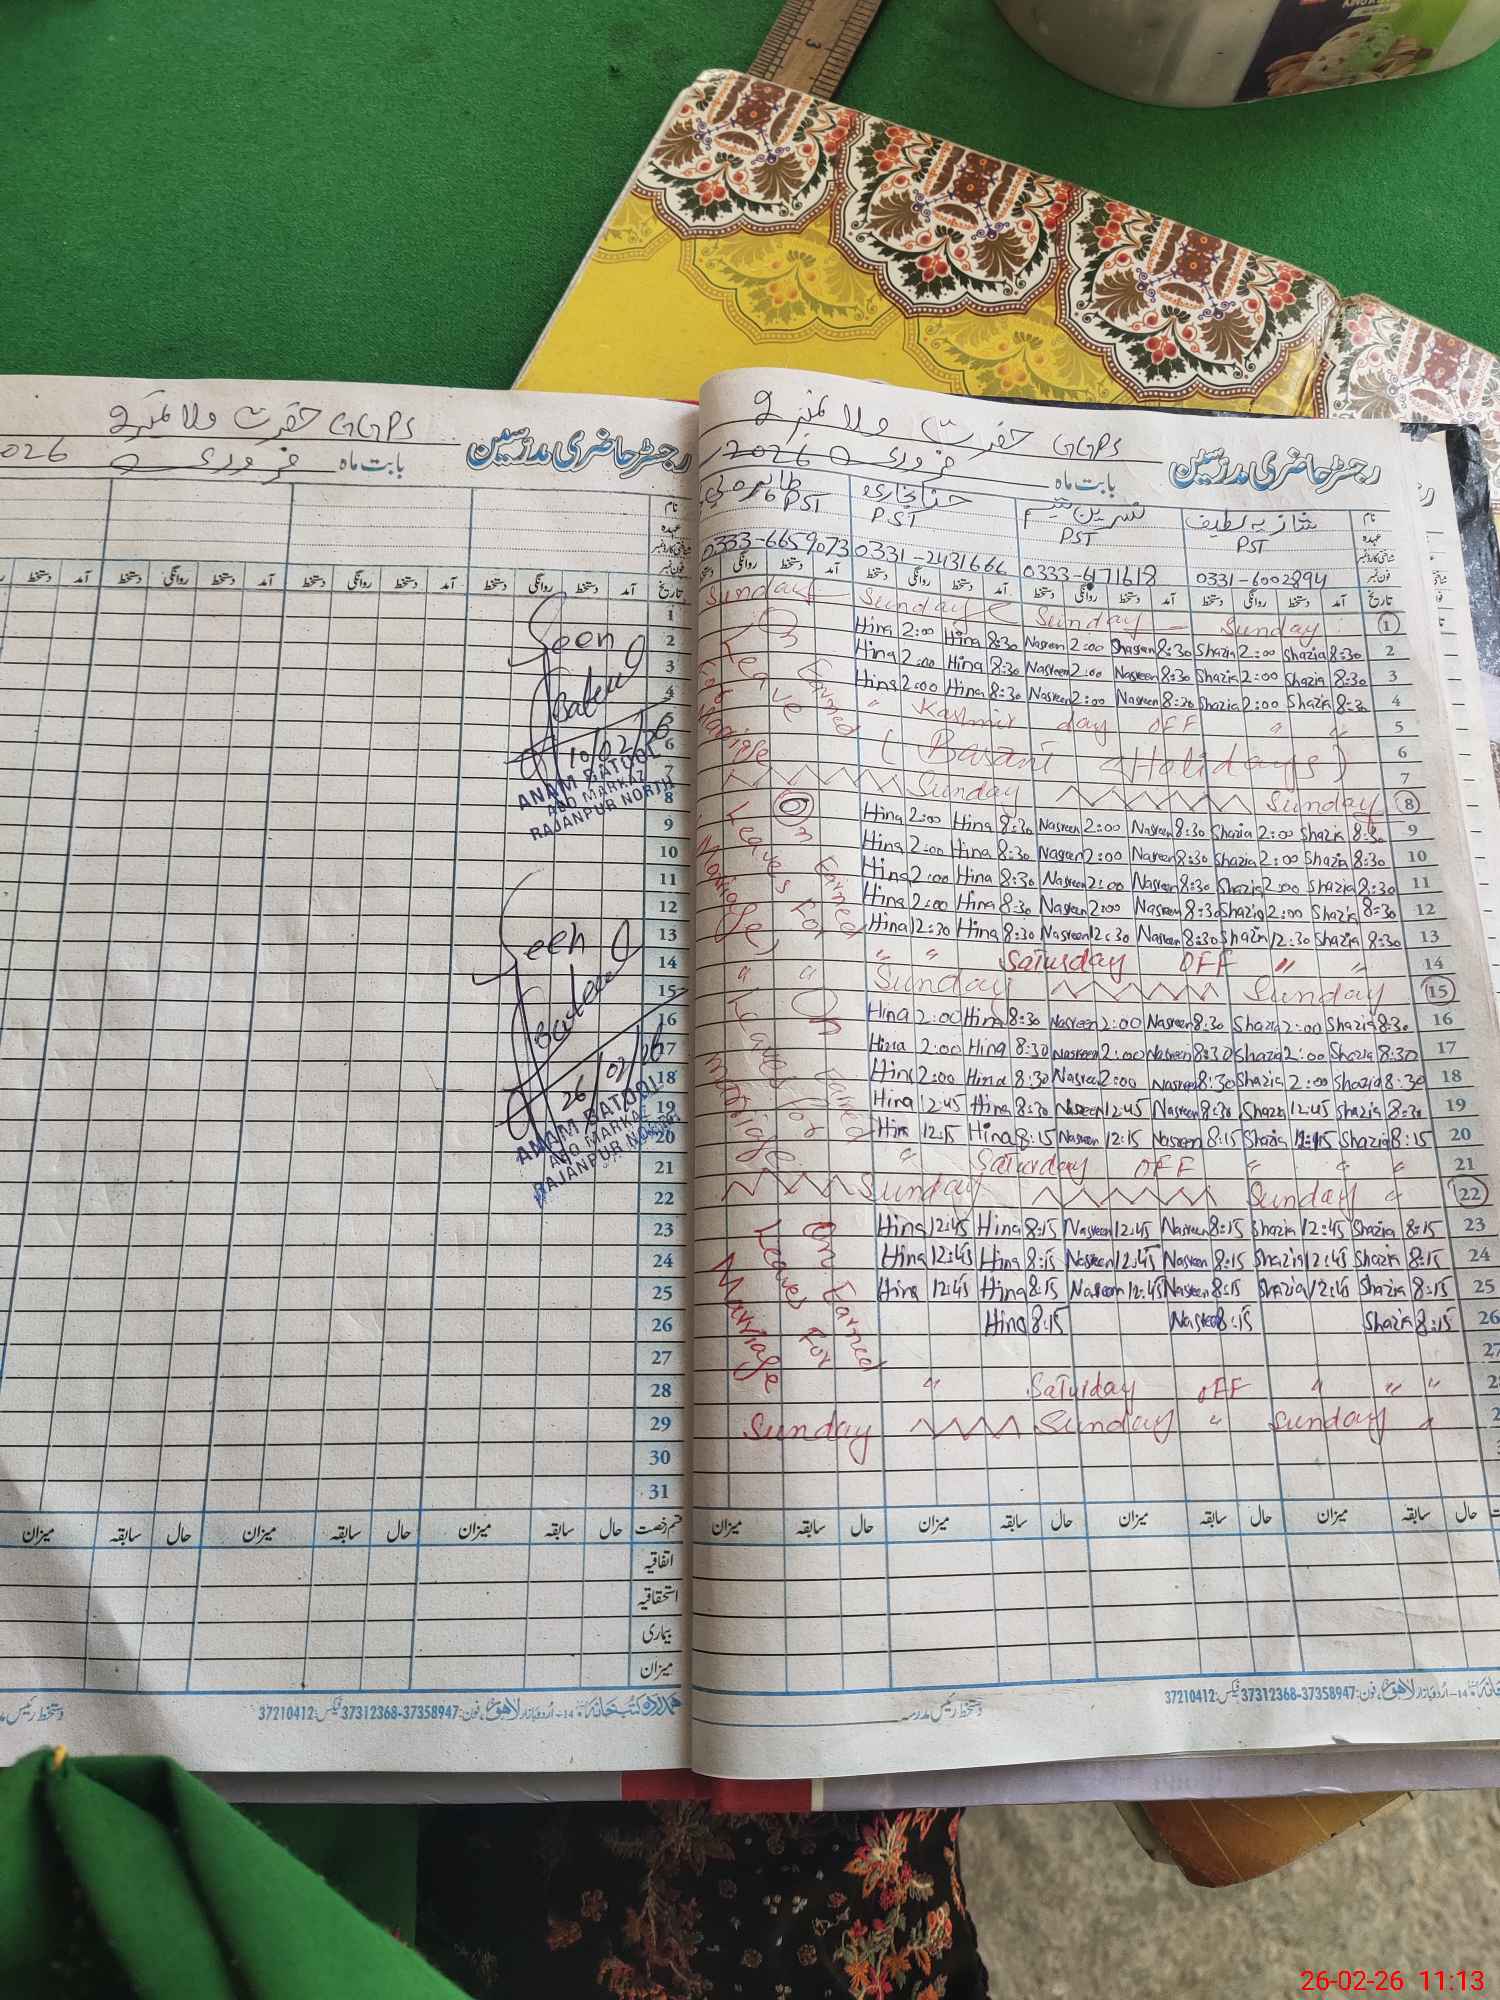 GGPS حضرت والا نمبر 2
رجسٹر حاضری مدرسین
بابت ماہ فروری 2026
نام
عہدہ
شناختی کارڈ نمبر
فون نمبر
تاریخ آمد دستخط روانگی دستخط آمد دستخط روانگی دستخط
1
2
3
4
5
6
7
8
9
10
11
12
13
14
15
16
17
18
19
20
21
22
23
24
25
26
27
28
29
30
31
Seen
Batool
10/02/26
ANAM BATOOL
AEO MARKAZ
RAJANPUR NORTH
Seen
Batool
26/02/26
ANAM BATOOL
AEO MARKAZ
RAJANPUR NORTH
قسم رخصت حال سابقہ میزان حال سابقہ میزان
اتفاقیہ
استحقاقیہ
بیماری
میزان
ہمدرد کتب خانہ 14-اردو بازار لاہور، فون: 37358947-37312368 فیکس: 37210412
GGPS حضرت والا نمبر 2
رجسٹر حاضری مدرسین
بابت ماہ فروری 2026
نام شازیہ لطیف نسرین حنا بخاری طاہرہ
عہدہ PST PST PST PST
0333-6659073 0331-2431666 0333-6171618 0331-6002894
تاریخ آمد دستخط روانگی دستخط آمد دستخط روانگی دستخط آمد دستخط روانگی دستخط آمد دستخط روانگی دستخط
Sunday Sunday Sunday Sunday 1
Hina 2:00 Hina 8:30 Nasreen 2:00 8:30 Shazia 2:00 Shazia 8:30 2
Hina 2:00 Hina 8:30 Nasreen 2:00 Nasreen 8:30 Shazia 2:00 Shazia 8:30 3
Hina 2:00 Hina 8:30 Nasreen 2:00 Nasreen 8:30 Shazia 2:00 Shazia 8:30 4
" Kashmir day OFF " " 5
( Basant Holidays ) 6
7
Sunday Sunday 8
Hina 2:00 Hina 8:30 Nasreen 2:00 Nasreen 8:30 Shazia 2:00 Shazia 8:30 9
Hina 2:00 Hina 8:30 Nasreen 2:00 Nasreen 8:30 Shazia 2:00 Shazia 8:30 10
Hina 2:00 Hina 8:30 Nasreen 2:00 Nasreen 8:30 Shazia 2:00 Shazia 8:30 11
Hina 2:00 Hina 8:30 Nasreen 2:00 Nasreen 8:30 Shazia 2:00 Shazia 8:30 12
Hina 12:30 Hina 8:30 Nasreen 12:30 Nasreen 8:30 Shazia 12:30 Shazia 8:30 13
" " Saturday OFF " " 14
" " Sunday Sunday 15
Hina 2:00 Hina 8:30 Nasreen 2:00 Nasreen 8:30 Shazia 2:00 Shazia 8:30 16
Hina 2:00 Hina 8:30 Nasreen 2:00 Nasreen 8:30 Shazia 2:00 Shazia 8:30 17
Hina 2:00 Hina 8:30 Nasreen 2:00 Nasreen 8:30 Shazia 2:00 Shazia 8:30 18
Hina 12:45 Hina 8:30 Nasreen 12:45 Nasreen 8:30 Shazia 12:45 Shazia 8:30 19
Hina 12:15 Hina 8:15 Nasreen 12:15 Nasreen 8:15 Shazia Shazia 8:15 20
" Saturday OFF " " " 21
Sunday Sunday " 22
Hina 12:45 Hina 8:15 Nasreen 12:45 Nasreen 8:15 Shazia 12:45 Shazia 8:15 23
Hina 12:45 Hina 8:15 Nasreen 12:45 Nasreen 8:15 Shazia 12:45 Shazia 8:15 24
Hina 12:45 Hina 8:15 Nasreen 12:45 Nasreen 8:15 Shazia 12:45 Shazia 8:15 25
Hina 8:15 Nasreen 8:15 Shazia 8:15 26
27
" Saturday OFF " " "
Sunday Sunday " Sunday "
On Earned
Leave
For Marriage
On Earned
Leaves For
Marriage
On Earned
Leaves for
Marriage
On Earned
Leaves For
Marriage
حال سابقہ میزان حال سابقہ میزان حال سابقہ میزان حال سابقہ میزان
دستخط رئیس مدرسہ
14-اردو بازار لاہور، فون: 37358947-37312368 فیکس: 37210412
26-02-26 11:13